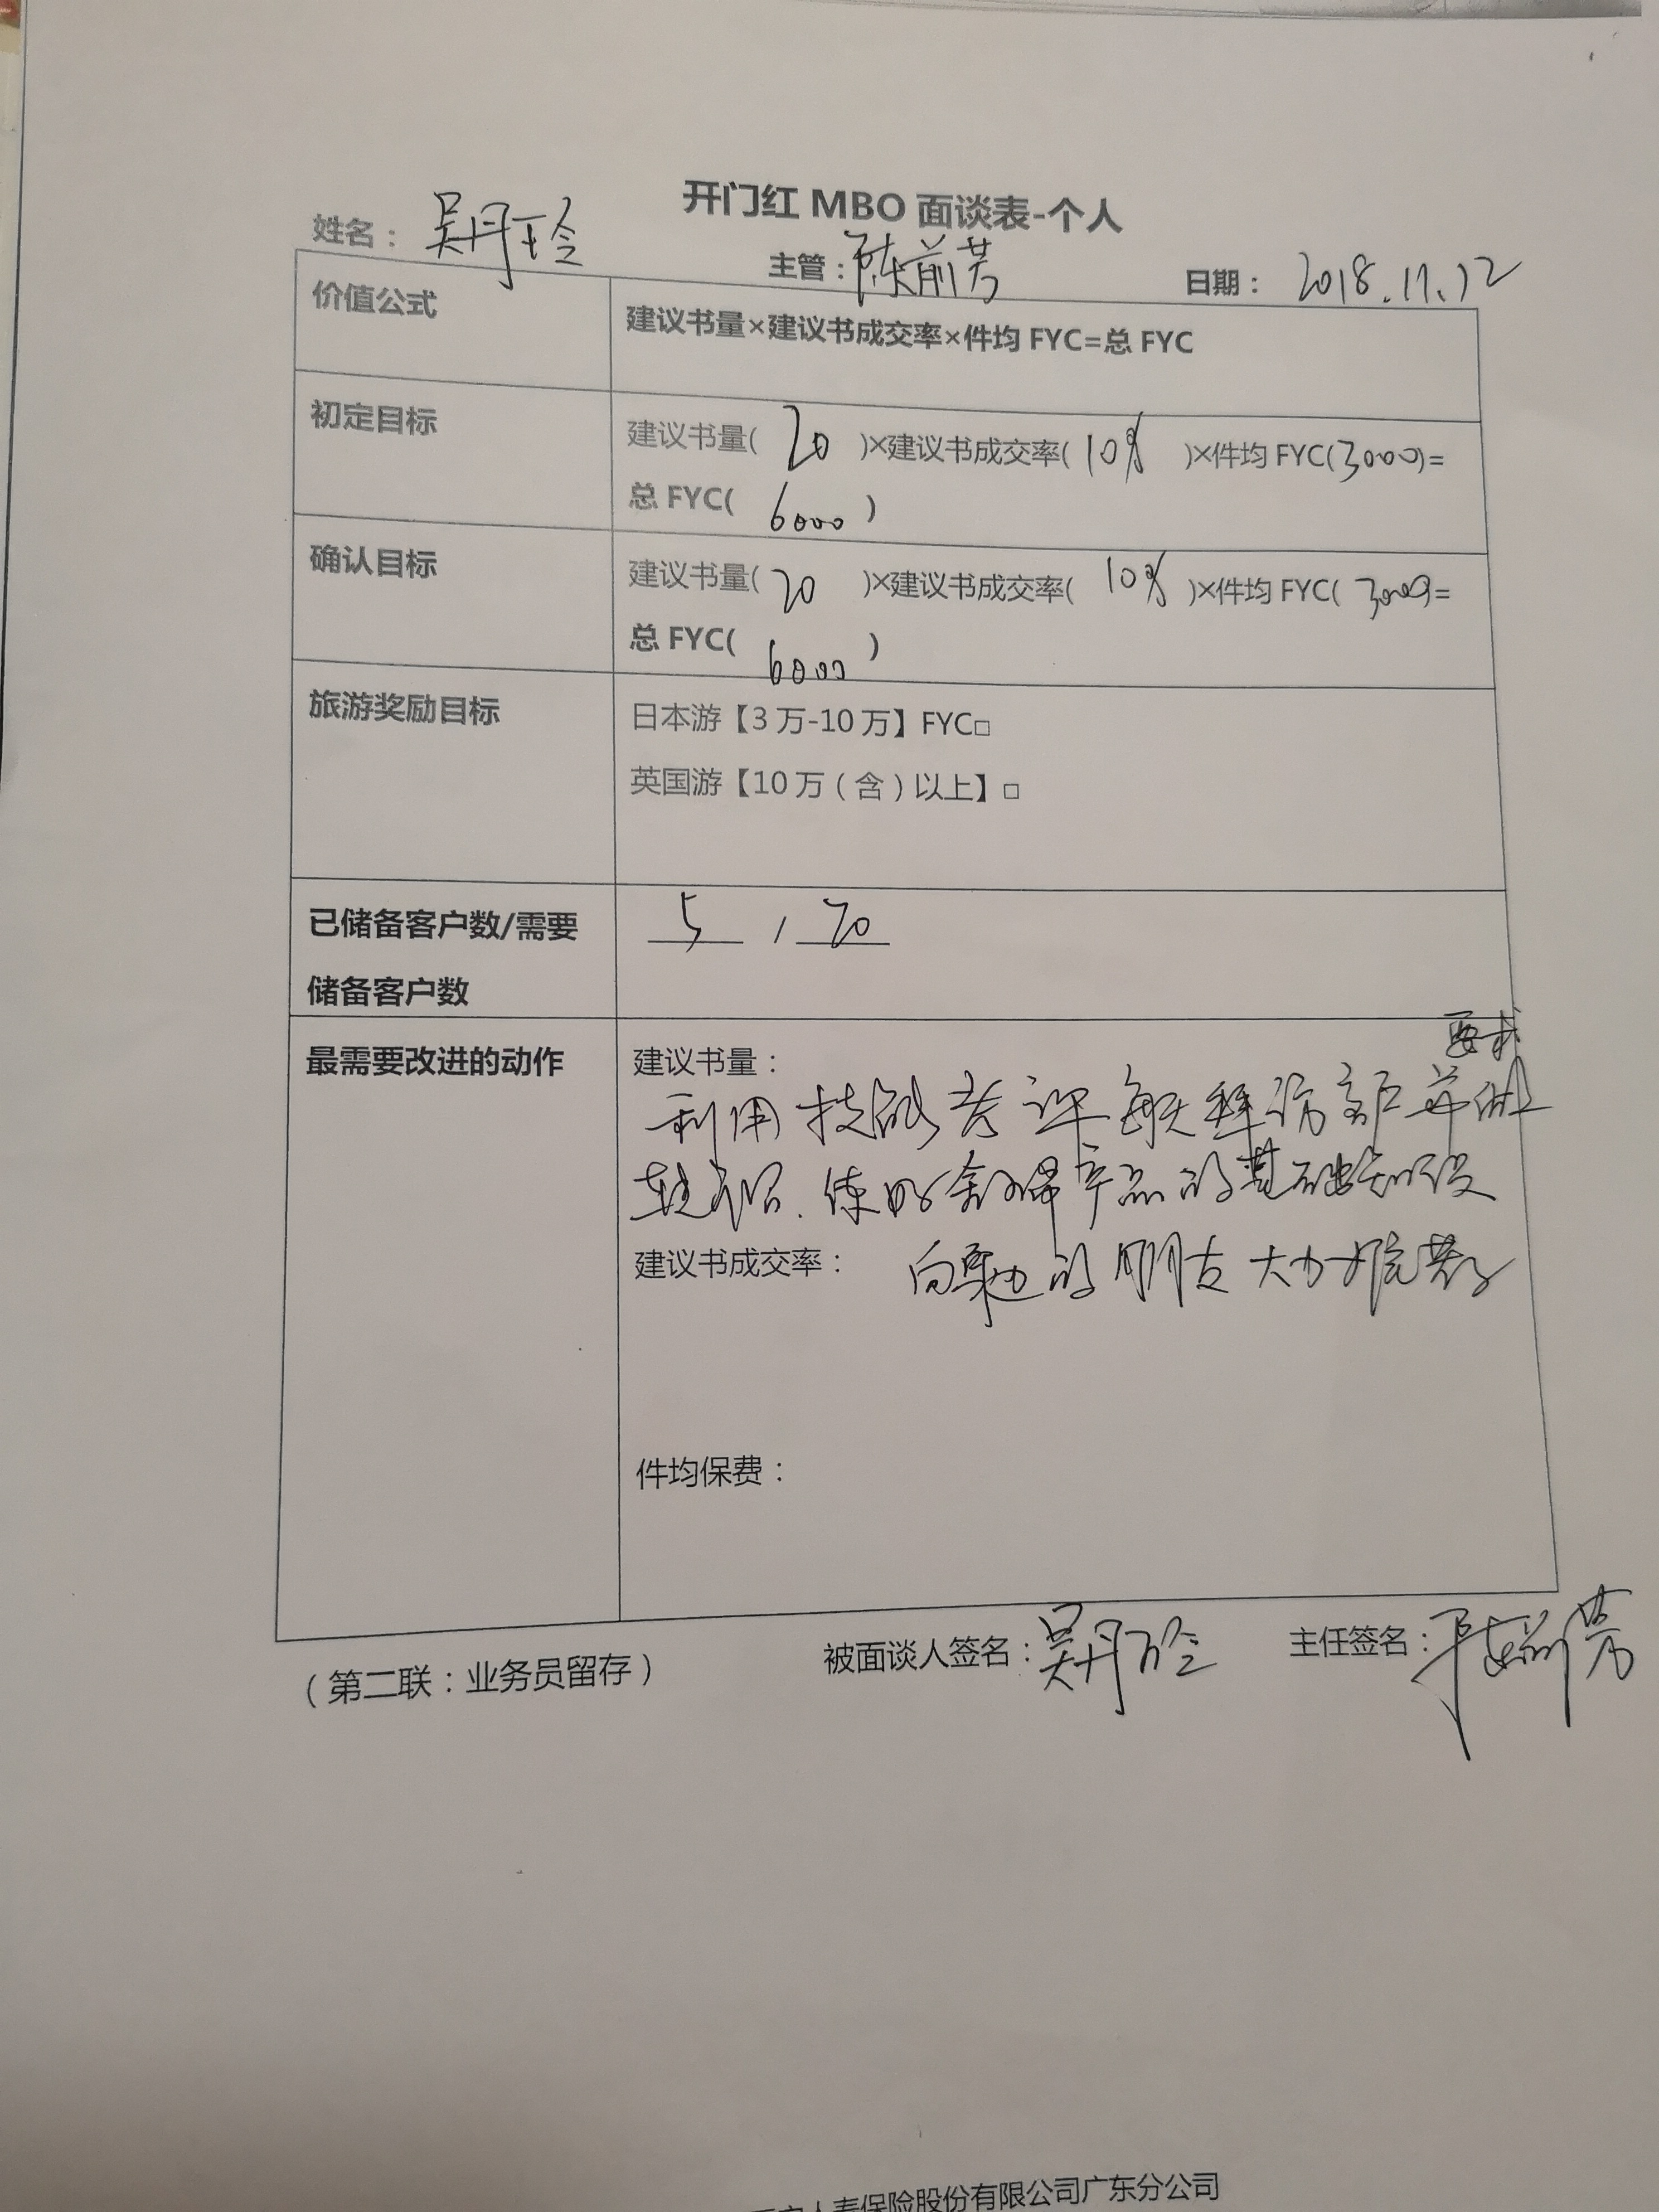 开门红 MBO 面谈表-个人
姓名： 吴丹玲 主管：陈前芳 日期： 2018.11.12
价值公式 建议书量×建议书成交率×件均 FYC=总 FYC
初定目标 建议书量( 20 )×建议书成交率( 10% )×件均 FYC(3000)=
总 FYC( 6000 )
确认目标 建议书量( 20 )×建议书成交率( 10% )×件均 FYC( 3000)=
总 FYC( 6000 )
旅游奖励目标 日本游【3 万-10 万】FYC□
英国游【10 万（含）以上】□
已储备客户数/需要 5 / 20
储备客户数
最需要改进的动作 建议书量：
要求
利用技能考评每天拜访客户并做
转介绍. 练好 产品的基础知识
建议书成交率： 向 的朋友大力
件均保费：
被面谈人签名：吴丹玲 主任签名：陈前芳
（第二联：业务员留存）
人寿保险股份有限公司广东分公司